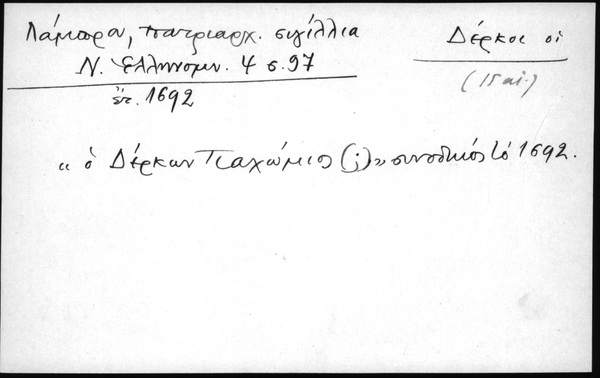 Λάμπρου, πατριαρχ. σιγίλλια
Ν. Ἑλληνομν. 4 σ. 97
ἔτ. 1692
Δέρκοι οἱ
(15 αἰ.)
« ὁ Δέρκων Παχώμιος (;) » συνοδικός τό 1692.